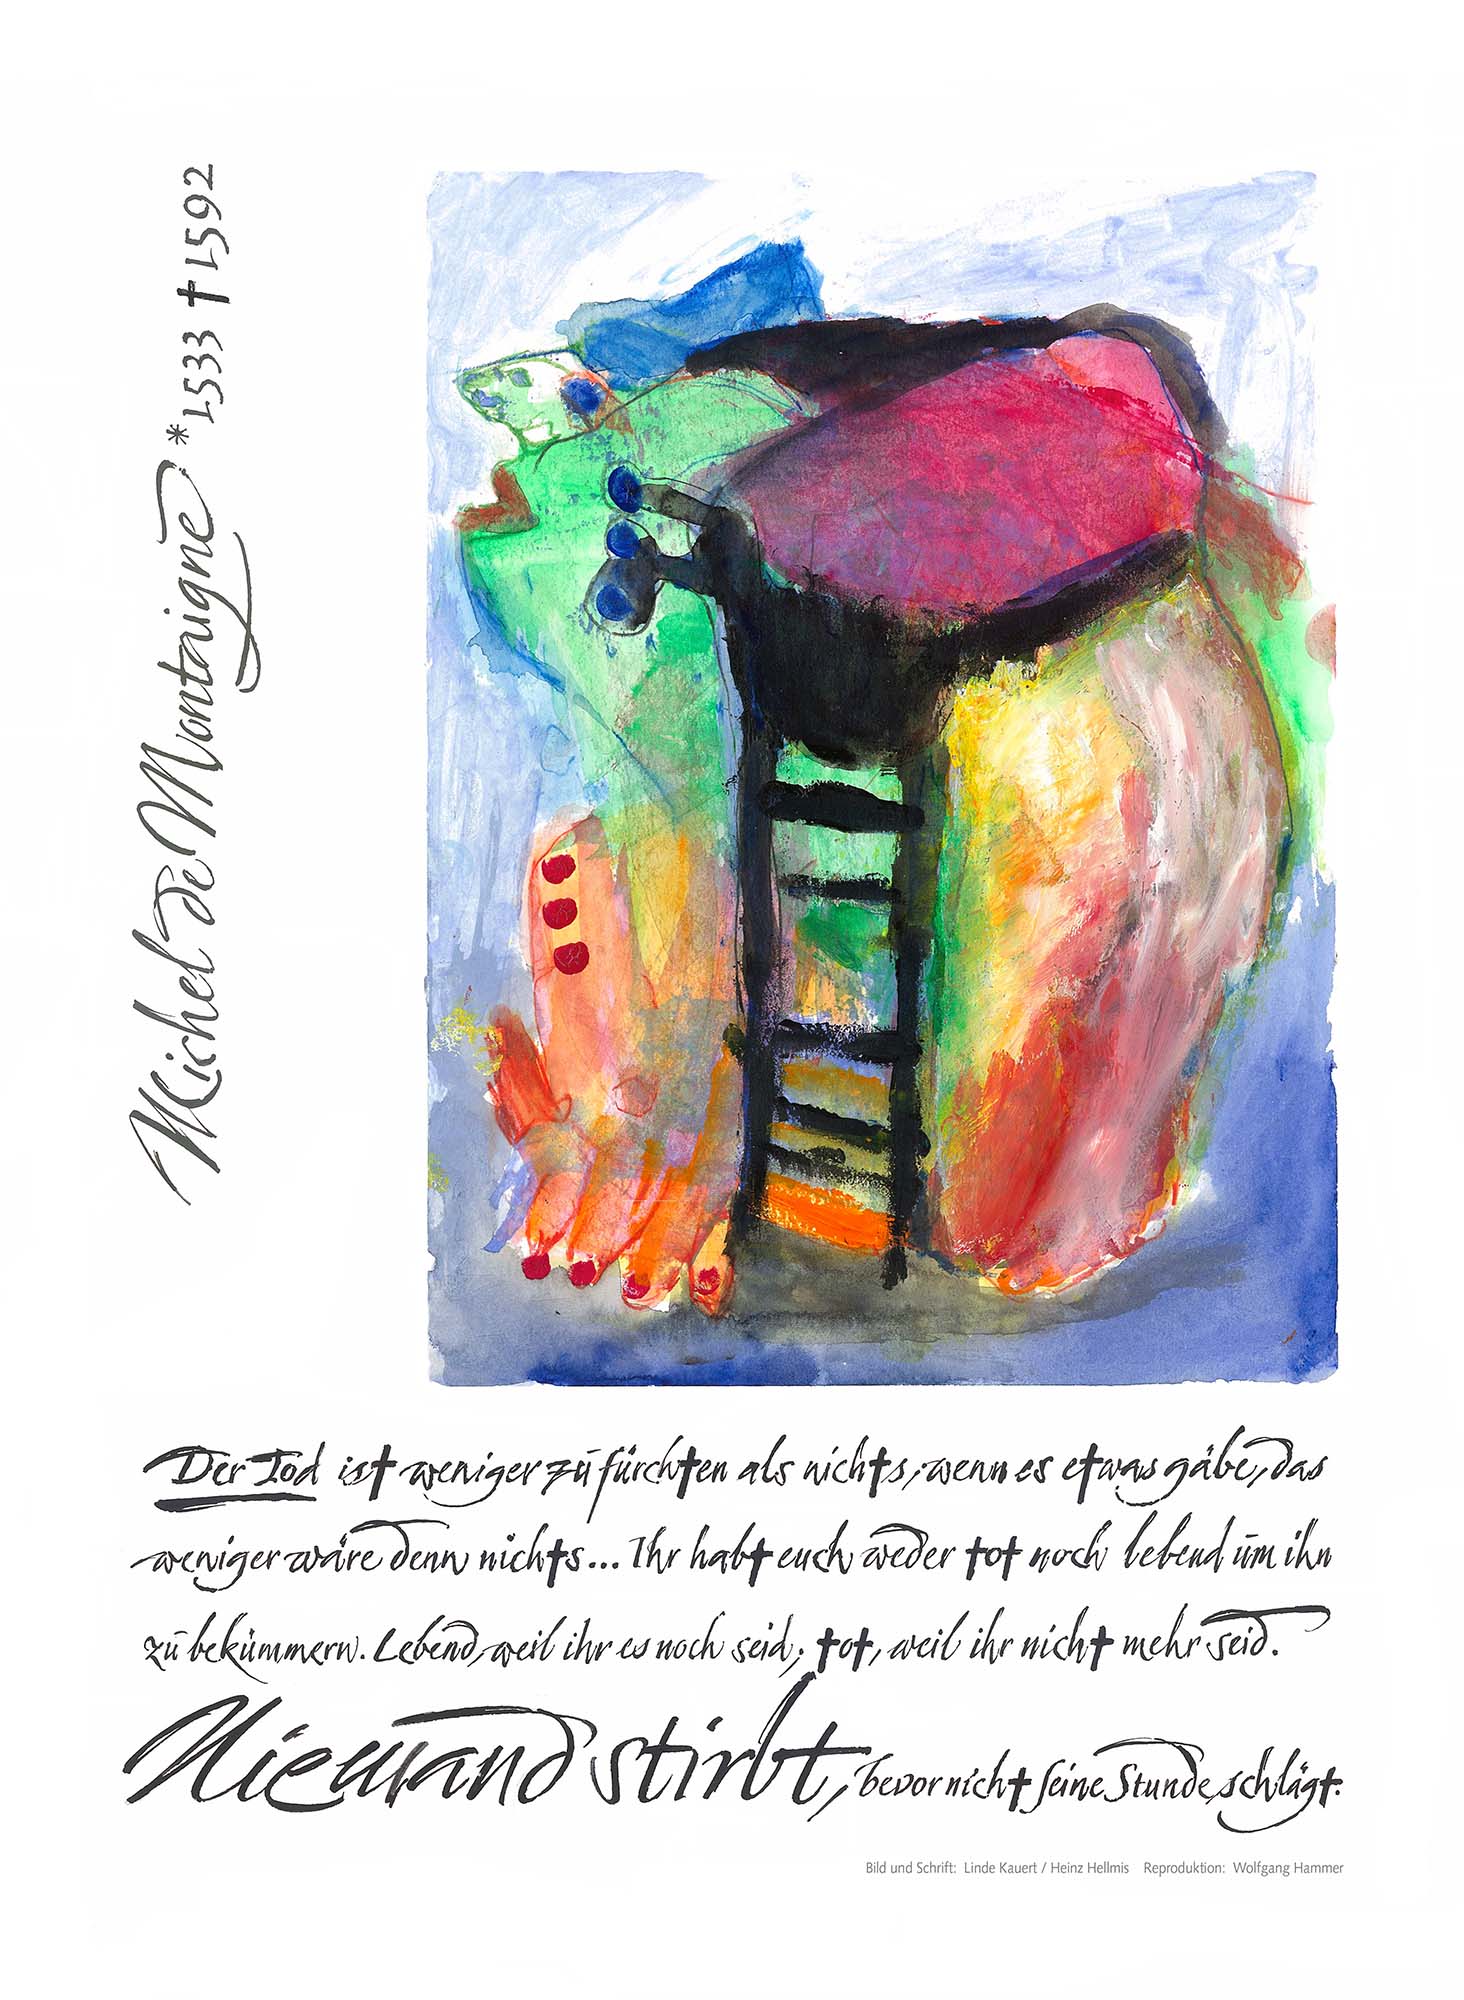 Michel de Montaigne *1533 † 1592
Der Tod ist weniger zu fürchten als nichts, wenn es etwas gäbe, das
weniger wäre denn nichts... Ihr habt euch weder tot noch lebend um ihn
zu bekümmern. Lebend, weil ihr es noch seid; tot, weil ihr nicht mehr seid.
Niemand stirbt, bevor nicht seine Stunde schlägt.
Bild und Schrift: Linde Kauert / Heinz Hellmis Reproduktion: Wolfgang Hammer